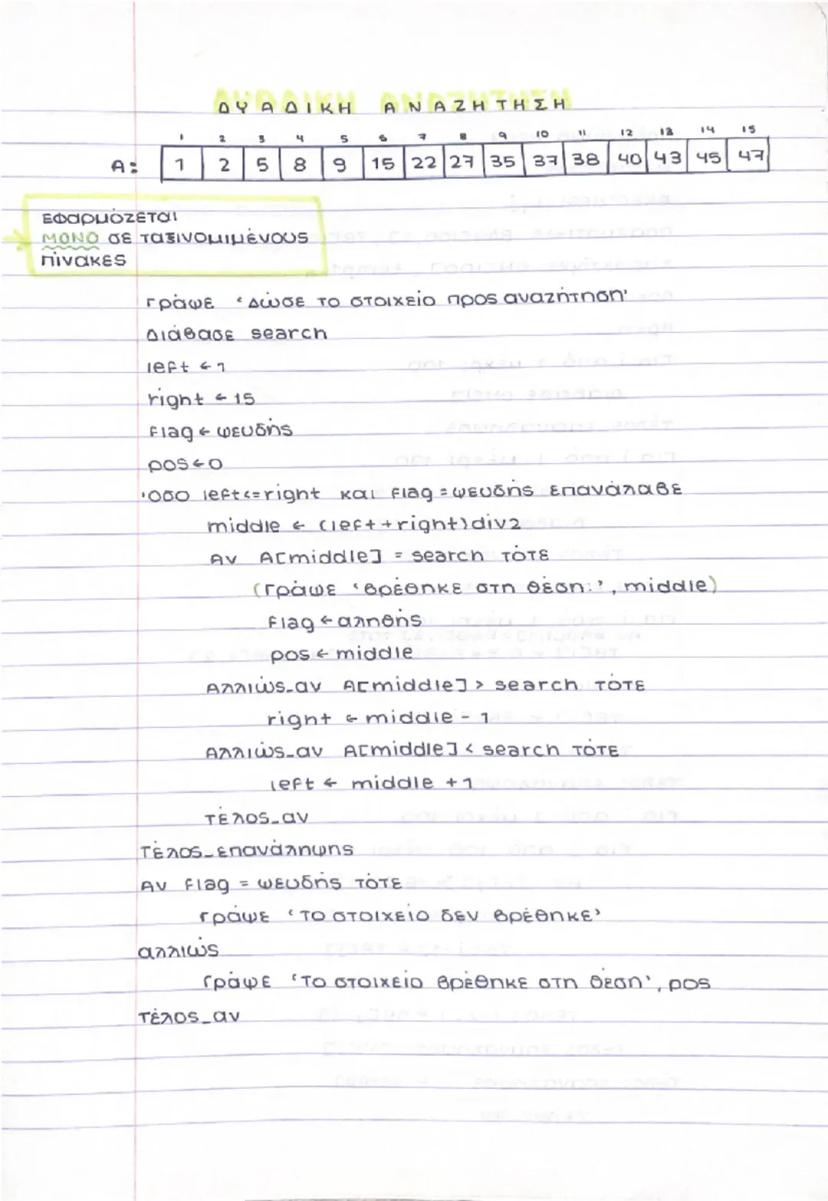 ΔΥΑΔΙΚΗ ΑΝΑΖΗΤΗΣΗ
1 2 3 4 5 6 7 8 9 10 11 12 13 14 15
Α: 1 2 5 8 9 15 22 27 35 37 38 40 43 45 47
Εφαρμόζεται
ΜΟΝΟ σε ταξινομιμένους
πίνακες
Γράψε 'Δώσε το στοιχείο προς αναζήτηση'
Διάβασε search
left ← 1
right ← 15
flag ← ψευδής
pos ← 0
'Οσο left <= right και flag = ψευδής επανάλαβε
middle ← (left + right) div 2
Αν Α[middle] = search τότε
(Γράψε 'Βρέθηκε στη θέση:', middle)
flag ← αληθής
pos ← middle
Αλλιώς_αν Α[middle] > search τότε
right ← middle - 1
Αλλιώς_αν Α[middle] < search τότε
left ← middle + 1
Τέλος_αν
Τέλος_επανάληψης
Αν flag = ψευδής τότε
Γράψε 'Το στοιχείο δεν βρέθηκε'
αλλιώς
Γράψε 'Το στοιχείο βρέθηκε στη θέση', pos
Τέλος_αν